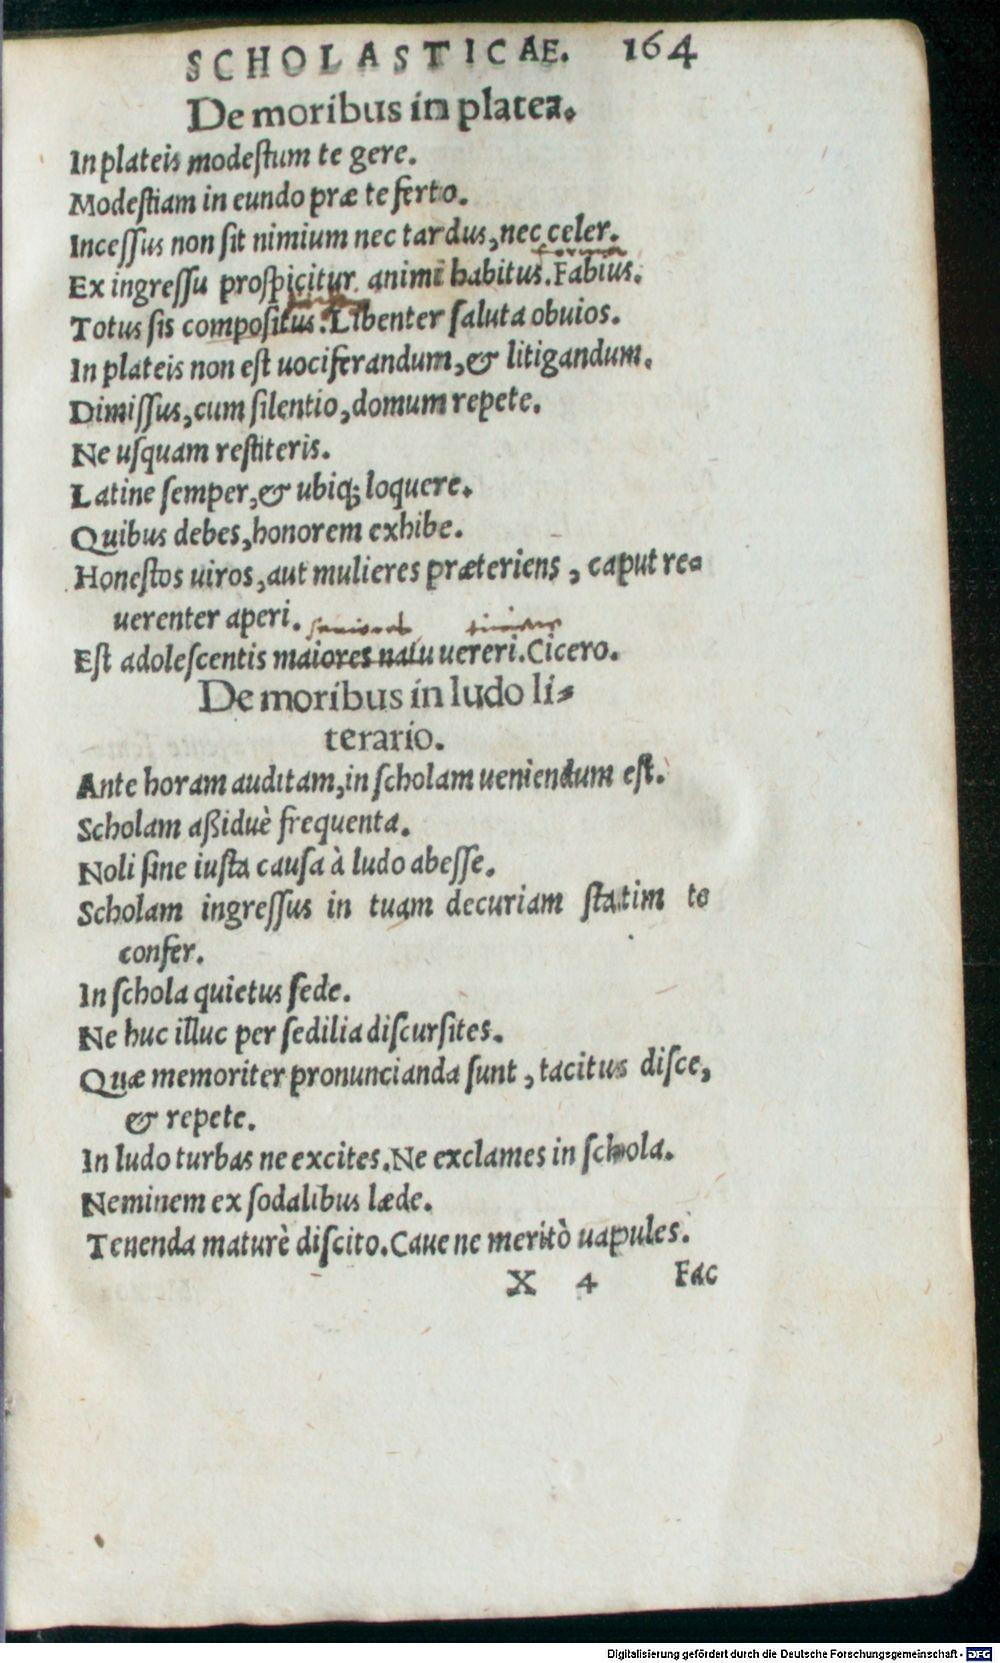 SCHOLASTICAE. 164
De moribus in platea.
In plateis modestum te gere.
Modestiam in eundo præ te ferto.
Incessus non sit nimium nec tardus, nec celer.
forma
Ex ingressu prospicitur animi habitus. Fabius.
Totus sis compositus. Libenter saluta obuios.
In plateis non est uociferandum, & litigandum.
Dimissus, cum silentio, domum repete.
Ne usquam restiteris.
Latine semper, & ubiq; loquere.
Quibus debes, honorem exhibe.
Honestos uiros, aut mulieres præteriens, caput re=
uerenter aperi.
seniores timere
Est adolescentis maiores natu uereri. Cicero.
De moribus in ludo li=
terario.
Ante horam auditam, in scholam ueniendum est.
Scholam aßiduè frequenta.
Noli sine iusta causa à ludo abesse.
Scholam ingressus in tuam decuriam statim te
confer.
In schola quietus sede.
Ne huc illuc per sedilia discursites.
Quæ memoriter pronuncianda sunt, tacitus disce,
& repete.
In ludo turbas ne excites. Ne exclames in schola.
Neminem ex sodalibus læde.
Tenenda maturè discito. Caue ne meritò uapules.
X 4 Fac
Digitalisierung gefördert durch die Deutsche Forschungsgemeinschaft - DFG